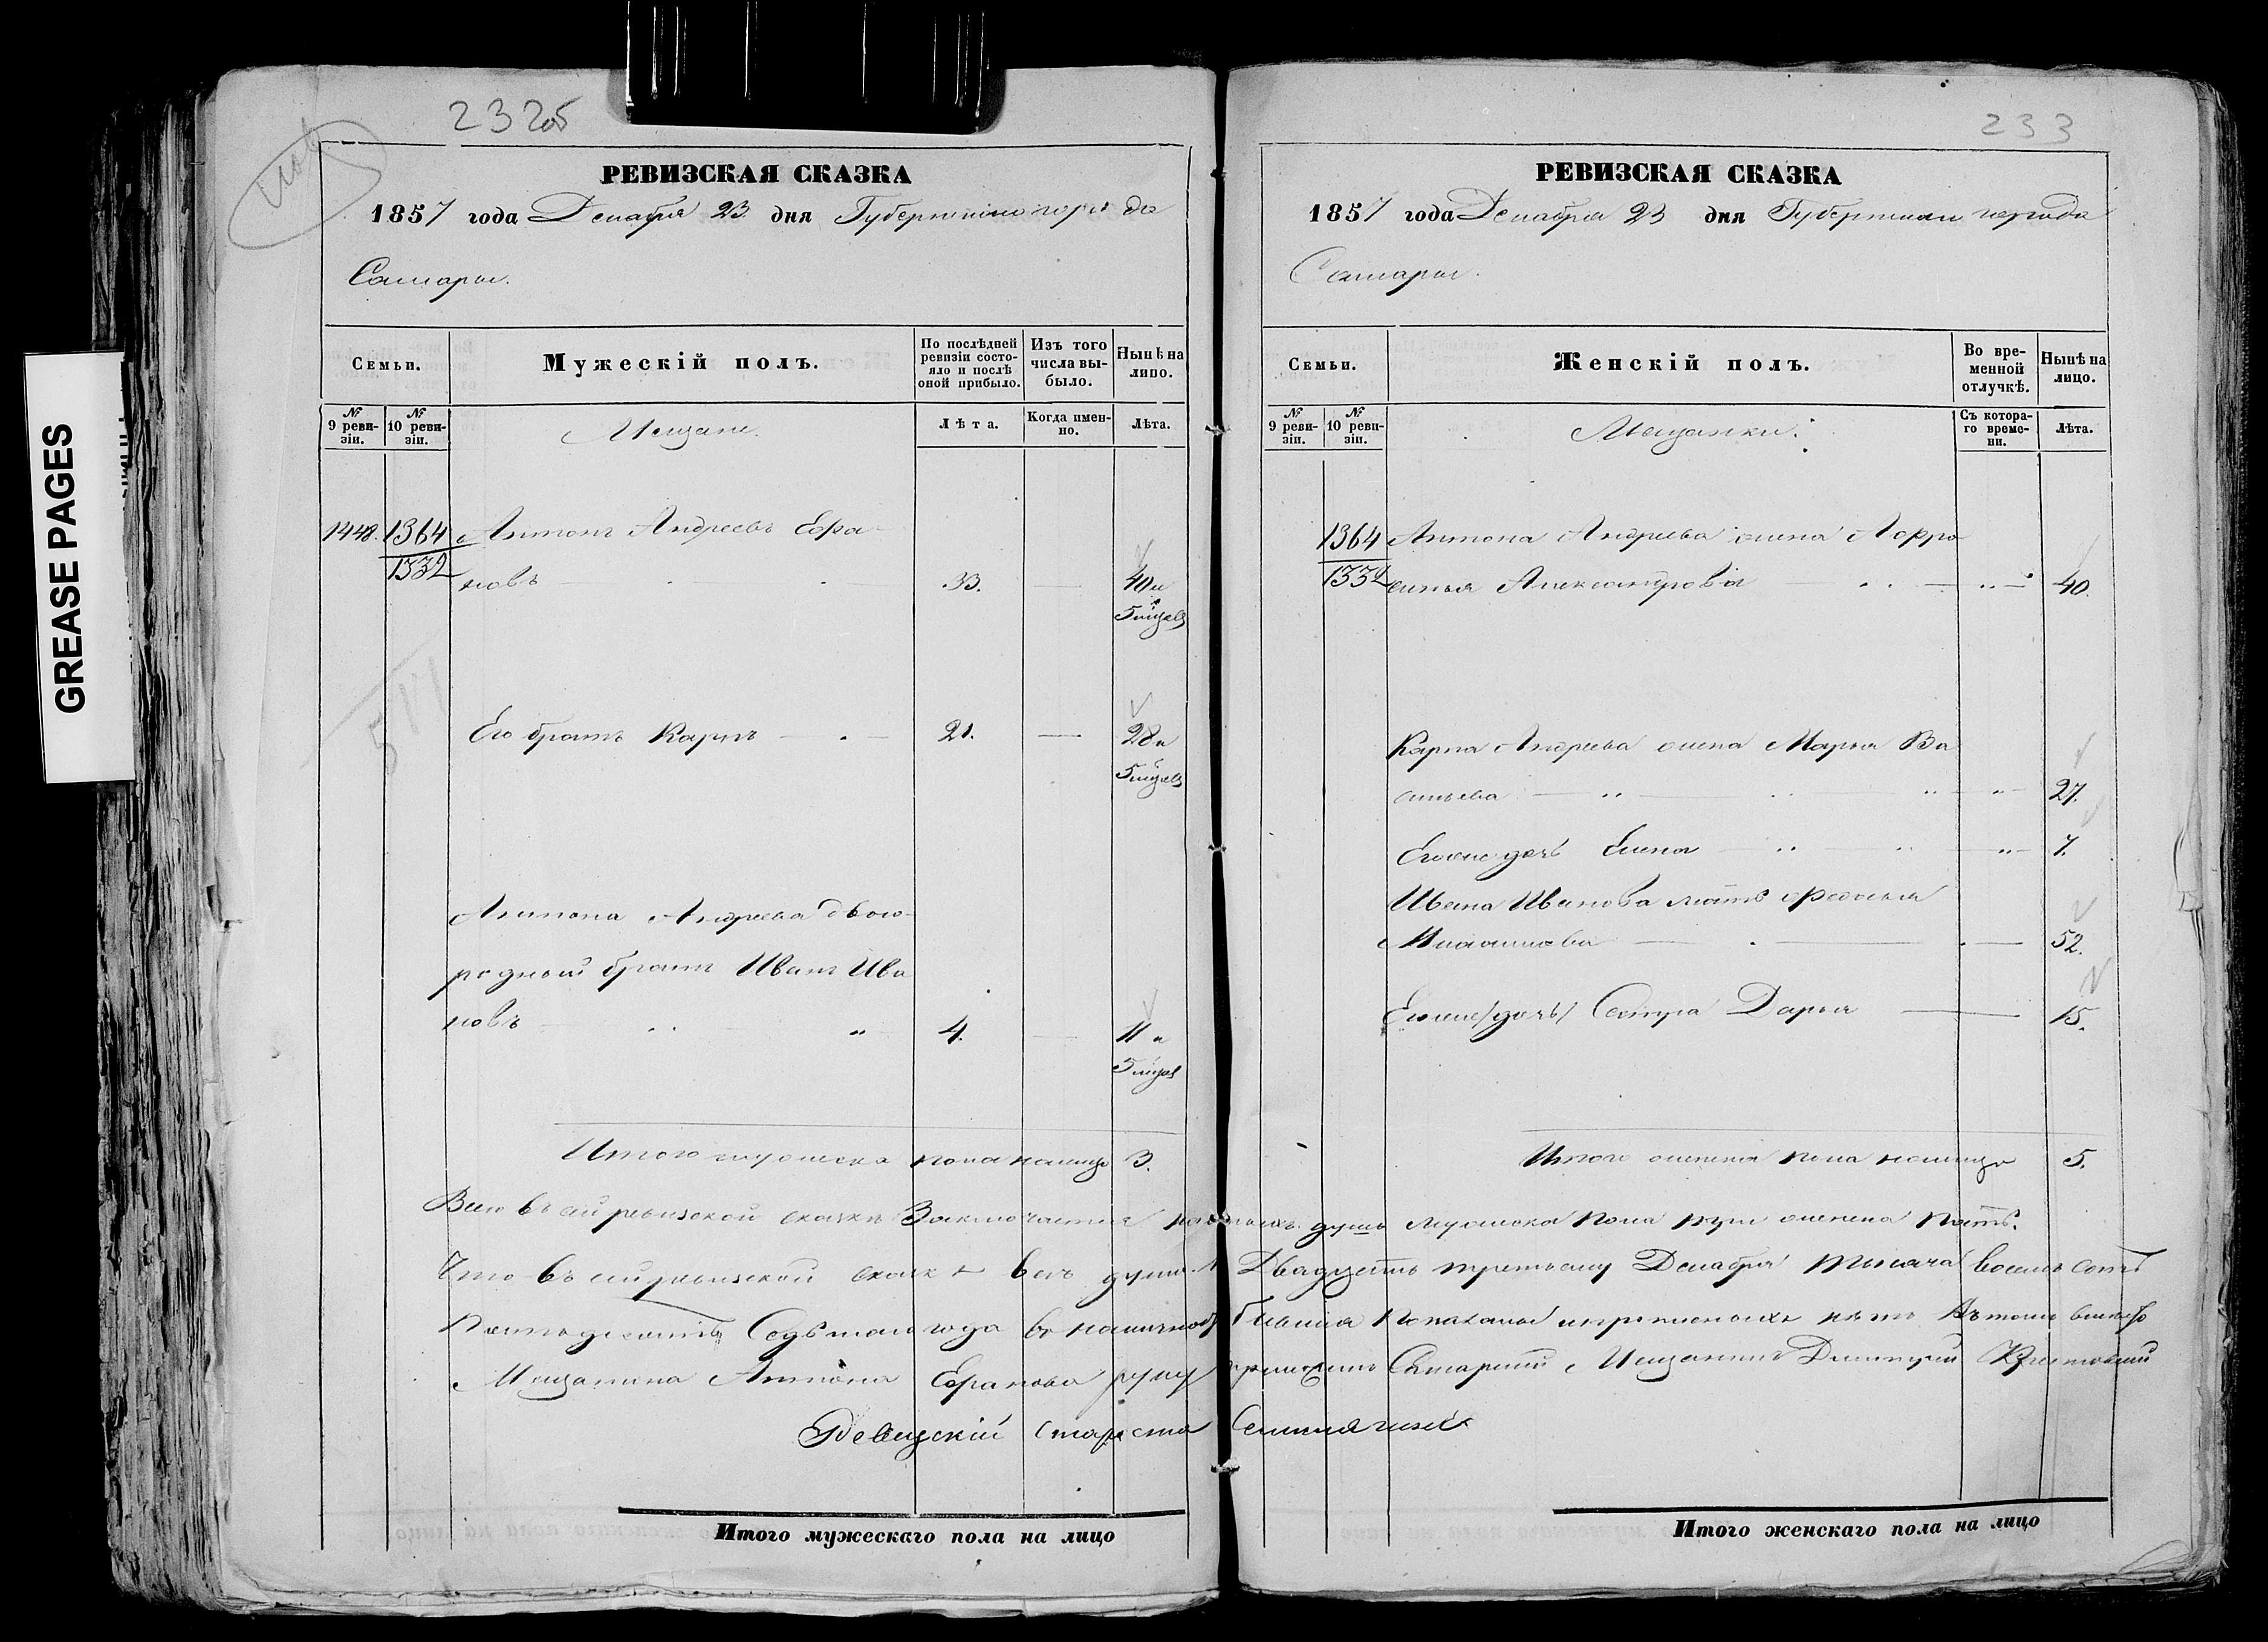 GREASE PAGES
232об
РЕВИЗСКАЯ СКАЗКА
1857 года Декабря 23 дня Губернскаго города
Самары.
Семьи.
Мужескій полъ.
По послѣдней ревизіи состояло и послѣ оной прибыло.
Изъ того числа выбыло.
Нынѣ на лицо.
№ 9 ревизіи.
№ 10 ревизіи.
Мещане.
Лѣта.
Когда именно.
Лѣта.
1448. 1364 Антонъ Андреевъ Ефра-
1332 новъ 33. 40 и
5 мѣсяцъ
Его братъ Карпъ 21. 28 и
5 мѣсяцъ
Антона Андреева двою-
родный братъ Иванъ Ива
новъ 4. 11 и
5 мѣсяцъ
Итого мужеска пола налицо 3.
233
РЕВИЗСКАЯ СКАЗКА
1857 года Декабря 23 дня Губернскаго города
Самары.
Семьи.
Женскій полъ.
Во временной отлучкѣ.
Нынѣ на лицо.
№ 9 ревизіи.
№ 10 ревизіи.
Мещанки.
Съ котораго времени.
Лѣта.
1364 Антона Андреева жена Афро
1332 синья Александрова 40.
Карпа Андреева жена Марья Ва
сильева 27.
Егоже дочь Елена 7.
Ивана Иванова мать Федосья
52.
Егоже /дочь/ Сестра Дарья 15.
Итого женска пола налицо 5.
Всего въ сей ревизской сказкѣ Заключается душъ мужеска пола три женска пять.
Что въ сей ревизской сказкѣ всѣ души къ Двадцать третьему Декабря тысяча восемь сотъ
Пятьдесятъ Седьмаго года въ наличности бывшія показаны и прописныхъ нѣтъ въ томъ вмѣсто
Мещанина Антона Ефранова руку приложилъ Самарскій Мещанинъ Дмитрій
Ревизскій староста
Итого мужескаго пола на лицо
Итого женскаго пола на лицо